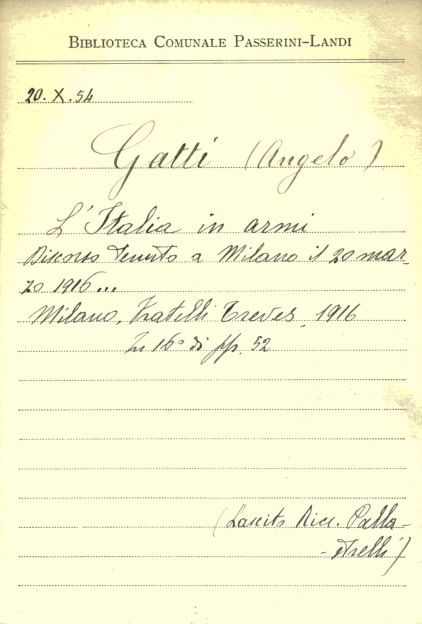 BIBLIOTECA COMUNALE PASSERINI-LANDI
20.X.54
Gatti (Angelo)
L'Italia in armi
Discorso tenuto a Milano il 20 mar-
zo 1916...
Milano, Fratelli Treves, 1916
In 16° di pp. 52
(Lascito Ricc. Palla-
-strelli)